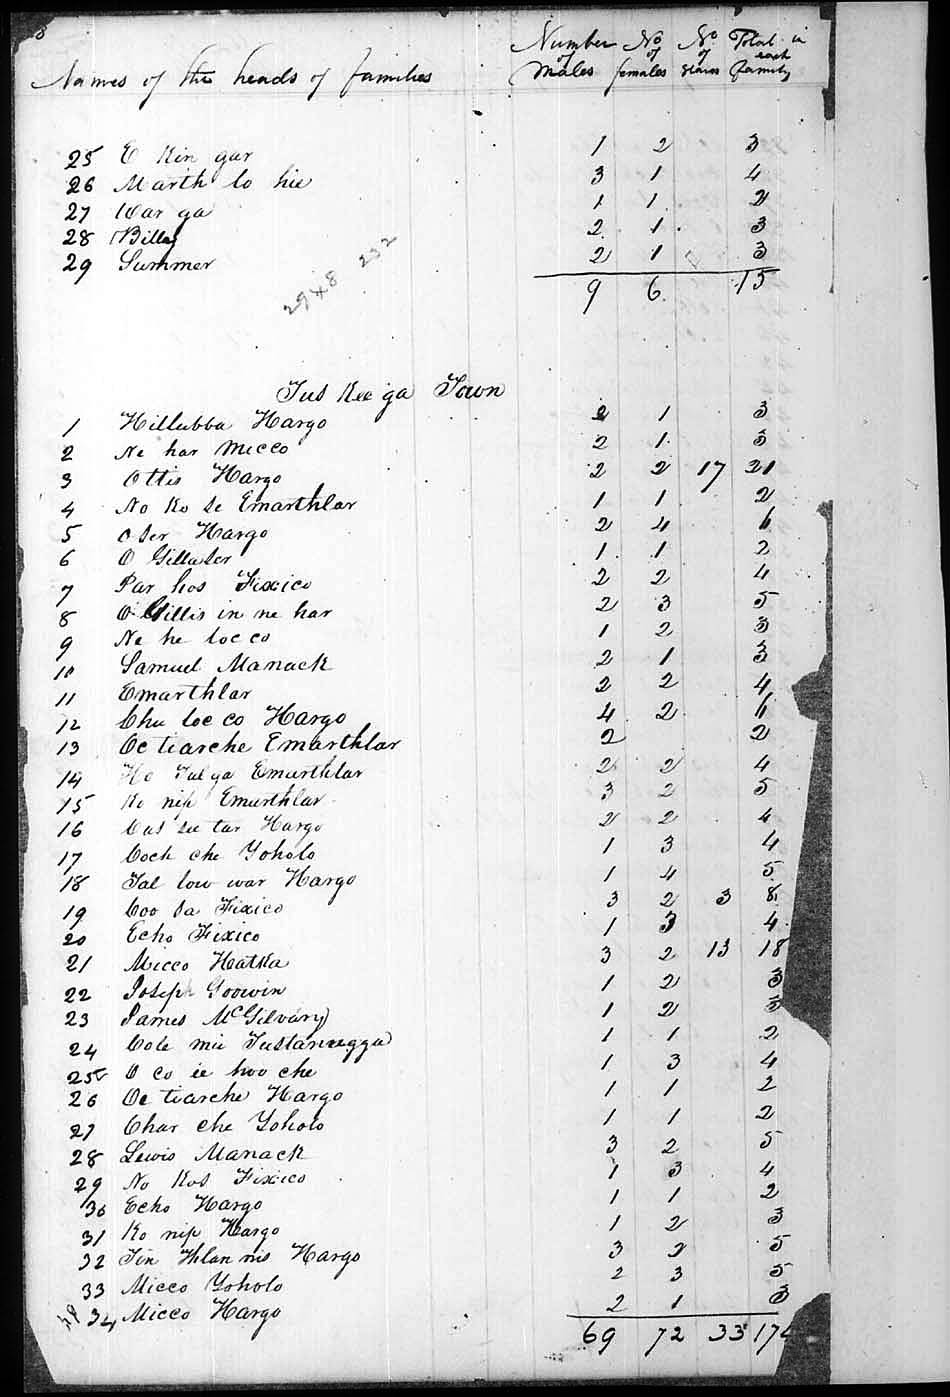 8
Names of the heads of families Number of Males No of females No of Slaves Total in each family
25 E Kin gar 1 2 3
26 Marth lo hie 3 1 4
27 War ga 1 1 2
28 Billy 2 1 3
29 Summer 2 1 3
9 6 15
29 + 8 232
Tus Kee ga Town
1 Hillubba Hargo 2 1 3
2 Ne har Micco 2 1 3
3 Ottis Hargo 2 2 17 21
4 No Ko se Emarthlar 1 1 2
5 O ser Hargo 2 4 6
6 O Gillaser 1 1 2
7 Par hos Fixico 2 2 4
8 O Gillis in ne har 2 3 5
9 Ne he loc co 1 2 3
10 Samuel Manack 2 1 3
11 Emarthlar 2 2 4
12 Chu loc co Hargo 4 2 6
13 Oc tiarche Emarthlar 2 2
14 Ho Tul ga Emarthlar 2 2 4
15 Ko nip Emarthlar 3 2 5
16 Cus see tar Hargo 2 2 4
17 Coch che Yoholo 1 3 4
18 Tal low war Hargo 1 4 5
19 Coo sa Fixico 3 2 3 8
20 Echo Fixico 1 3 4
21 Micco Hatka 3 2 13 18
22 Joseph Goowin 1 2 3
23 James McGilvary 1 2 3
24 Cote mie Tustannegga 1 1 2
25 O co ie hoo che 1 3 4
26 Oc tiarche Hargo 1 1 2
27 Char che Yoholo 1 1 2
28 Lewis Manack 3 2 5
29 No Kos Fixico 1 3 4
30 Echo Hargo 1 1 2
31 Ko nip Hargo 1 2 3
32 Tin Thlan nis Hargo 3 2 5
33 Micco Yoholo 2 3 5
34 Micco Hargo 2 1 3
69 72 33 174